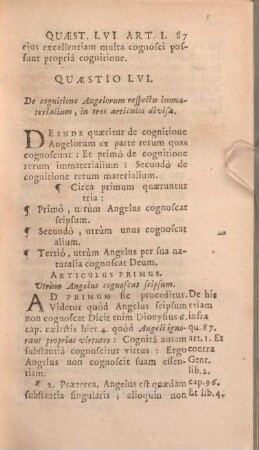 QUÆST. LVI ART. I. 87
ejus excellentiam multa cognosci pos-
sunt propriâ cognitione.
QUÆSTIO LVI.
De cognitione Angelorum respectu imma-
terialium, in tres articulos divisa.
DEINDE quæritur de cognitione
Angelorum ex parte rerum quas
cognoscunt : Et primò de cognitione
rerum immaterialium : Secundò de
cognitione rerum materialium.
¶ Circa primum quæruntur
tria :
¶ Primò, utrùm Angelus cognoscat
seipsum.
¶ Secundò, utrùm unus cognoscat
alium.
¶ Tertiò, utrùm Angelus per sua na-
turalia cognoscat Deum.
ARTICULUS PRIMUS.
Utrùm Angelus cognoscat seipsum.
AD PRIMUM sic proceditur. De his
Videtur quòd Angelus seipsum etiam
non cognoscat Dicit enim Dionysius 6. infra
cap. cælestis hier 4. quòd Angeli igno- qu. 87.
rant proprias virtutes : Cognitâ autem art. 1. Et
substantiâ cognoscitur virtus : Ergo contra
Angelus non cognoscit suam essen- Gent.
tiam. lib. 2.
¶ 2. Præterea, Angelus est quædam cap. 96.
substantia singularis ; alioquin non Et lib. 4.